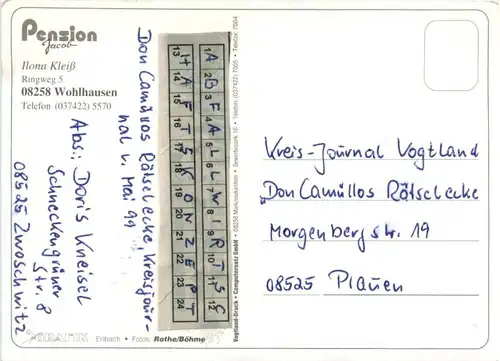 Pension
Jacob
Ilona Kleiß
Ringweg 5
08258 Wohlhausen
Telefon (037422) 5570
Don Camillos Rätselecke Kreisjour-
nal v. Mai 99
1 2 3 4 5 6 7 8 9 10 11 12
A B F A L L W I R T S C
13 14 15 16 17 18 19 20 21 22 23 24
H A F T S K O N Z E P T
Abs.: Doris Kneisel
Schneckengrüner
Str. 8
08525 Zwoschwitz
GRAFIK Erlbach • Fotos: Rothe/Böhme
Vogtland-Druck • Computersatz GmbH • 08258 Markneukirchen • Gewerbepark 16 • Telefon (037422) 7005 • Telefax: 7004
Kreis-Journal Vogtland
"Don Camillos Rätselecke
Morgenbergstr. 19
08525 Plauen